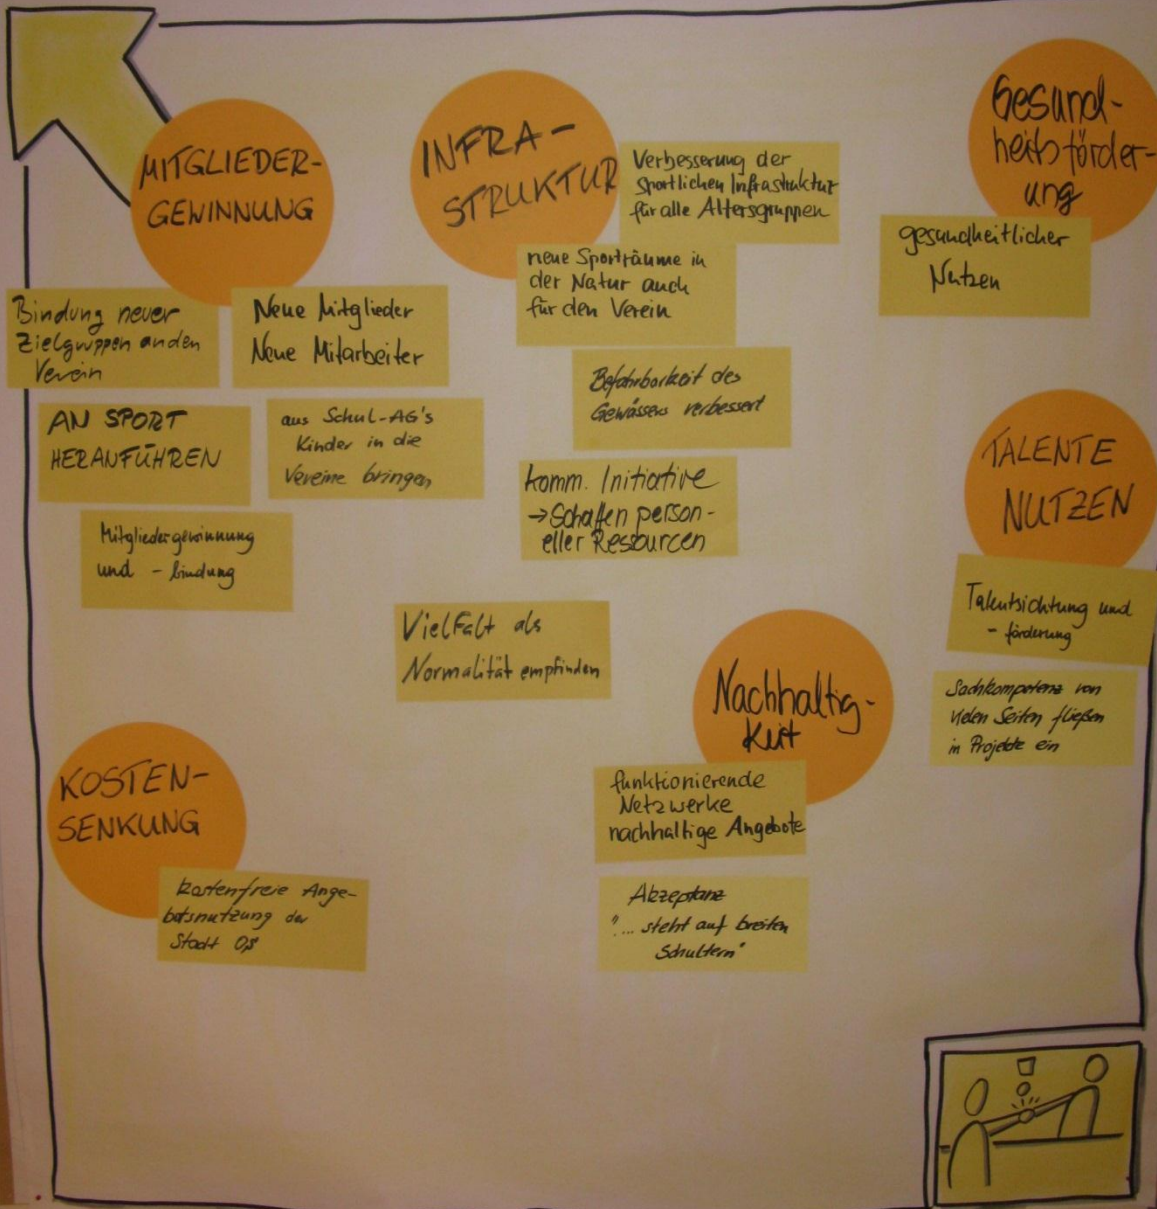 MITGLIEDER-
GEWINNUNG
Bindung neuer
Zielgruppen an den
Verein
Neue Mitglieder
Neue Mitarbeiter
AN SPORT
HERANFÜHREN
aus Schul-AG's
Kinder in die
Vereine bringen
Mitgliedergewinnung
und - bindung
INFRA-
STRUKTUR
Verbesserung der
Sportlichen Infrastruktur
für alle Altersgruppen
neue Sporträume in
der Natur auch
für den Verein
Befahrbarkeit des
Gewässers verbessert
komm. Initiative
→ Schaffen person-
eller Ressourcen
Vielfalt als
Normalität empfinden
Gesund-
heitsförder-
ung
gesundheitlicher
Nutzen
TALENTE
NUTZEN
Talentsichtung und
- förderung
Sachkompetenz von
vielen Seiten fließen
in Projekte ein
Nachhaltig-
keit
funktionierende
Netzwerke
nachhaltige Angebote
Akzeptanz
"... steht auf breiten
Schultern"
KOSTEN-
SENKUNG
kostenfreie Ange-
botsnutzung der
Stadt OS